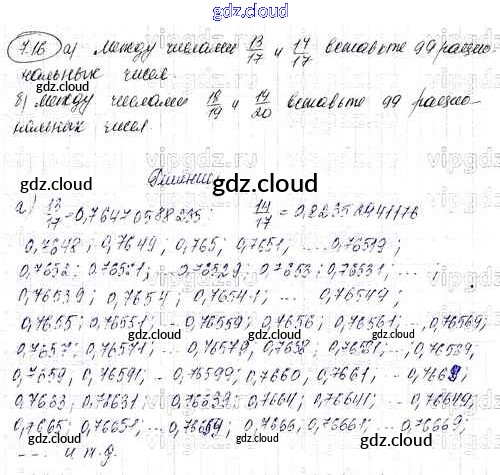 gdz.cloud
7.16 а) между числами 13/17 и 14/17 вставьте 99 рацио-
нальных чисел.
б) между числами 18/19 и 19/20 вставьте 99 рацио-
нальных чисел.
gdz.cloud
а) 13/17 = 0,76470588235; 14/17 =
0,7648; 0,7649; 0,765; 0,7651; ... 0,76519;
0,7652; 0,76521; ... 0,76529; 0,7653; 0,76531; ...
0,76539; 0,7654; 0,76541; ... 0,76549;
0,7655; 0,76551; ... 0,76559; 0,7656; 0,76561; ... 0,76569;
0,7657; 0,76571; ... 0,76579; 0,7658; 0,76581; ... 0,76589;
0,7659; 0,76591; ... 0,76599; 0,7660; 0,7661; ... 0,7669
0,7663; 0,76631; ... 0,76639; 0,7664; 0,76641; ... 0,76649;
0,7665; 0,76651; ... 0,76659; 0,7666; 0,76661; ... 0,76669;
... и т.д.
gdz.cloud